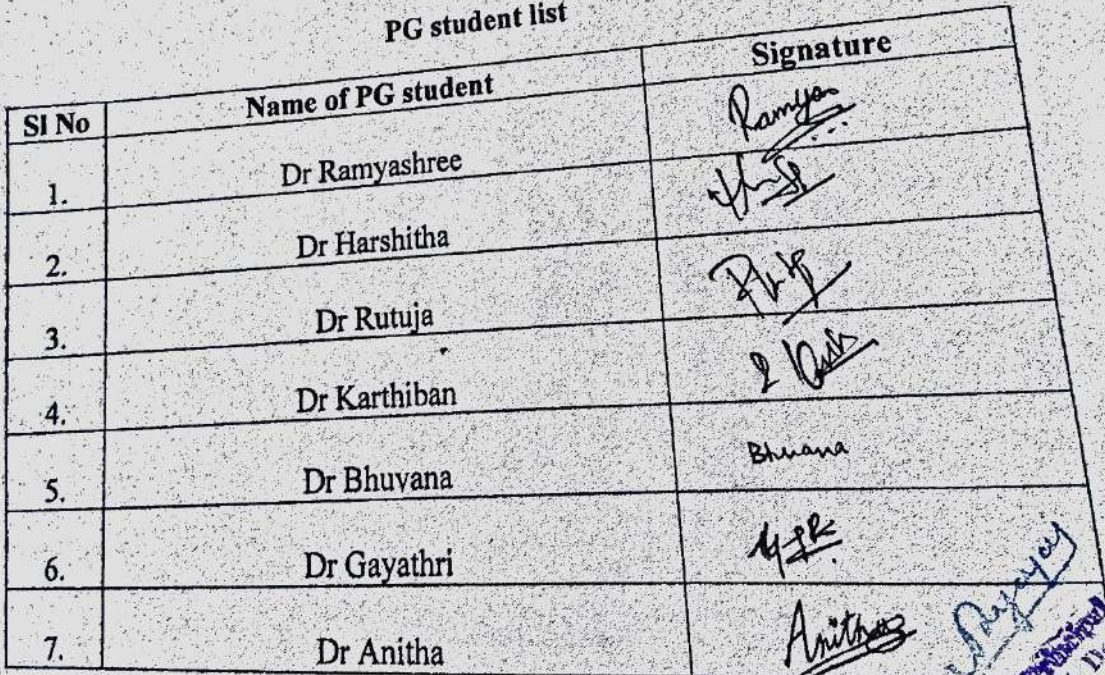 PG student list
Sl No Name of PG student Signature
1. Dr Ramyashree Ramya
2. Dr Harshitha
3. Dr Rutuja
4. Dr Karthiban
5. Dr Bhuvana Bhuvana
6. Dr Gayathri
7. Dr Anitha Anitha